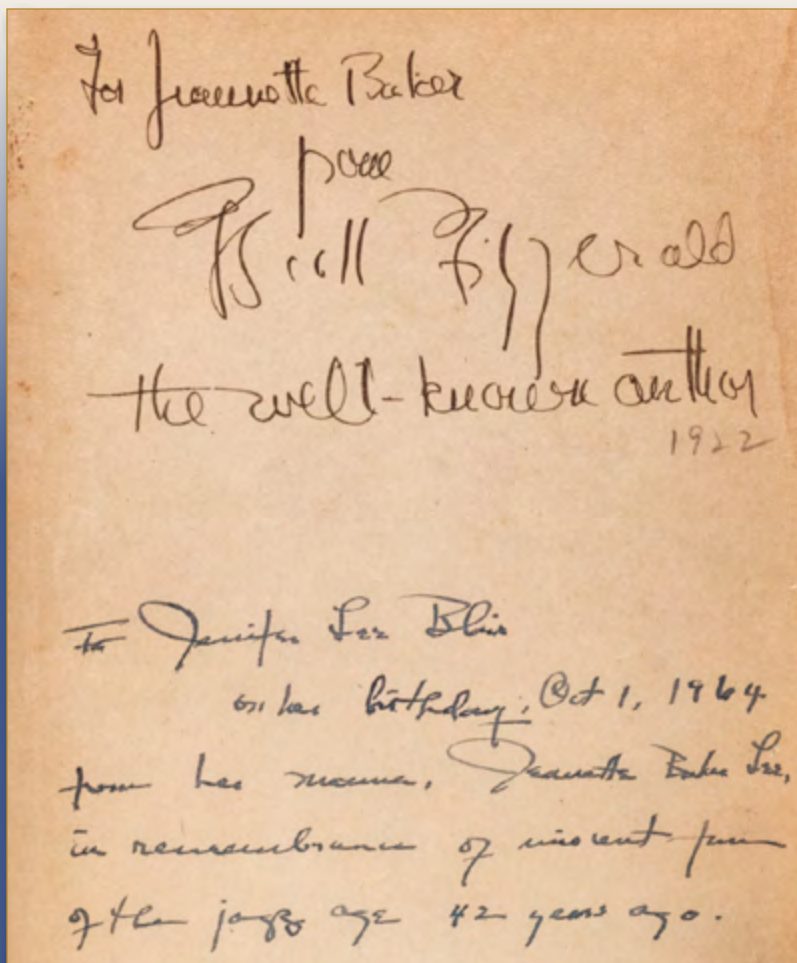 For Jeannette Baker
from
F Scott Fitzgerald
the well-known author
1922
To Jenifer Lee Blair
on her birthday, Oct 1, 1964
from her mama, Jeanette Baker Lee,
in remembrance of innocent fun
of the jazz age 42 years ago.